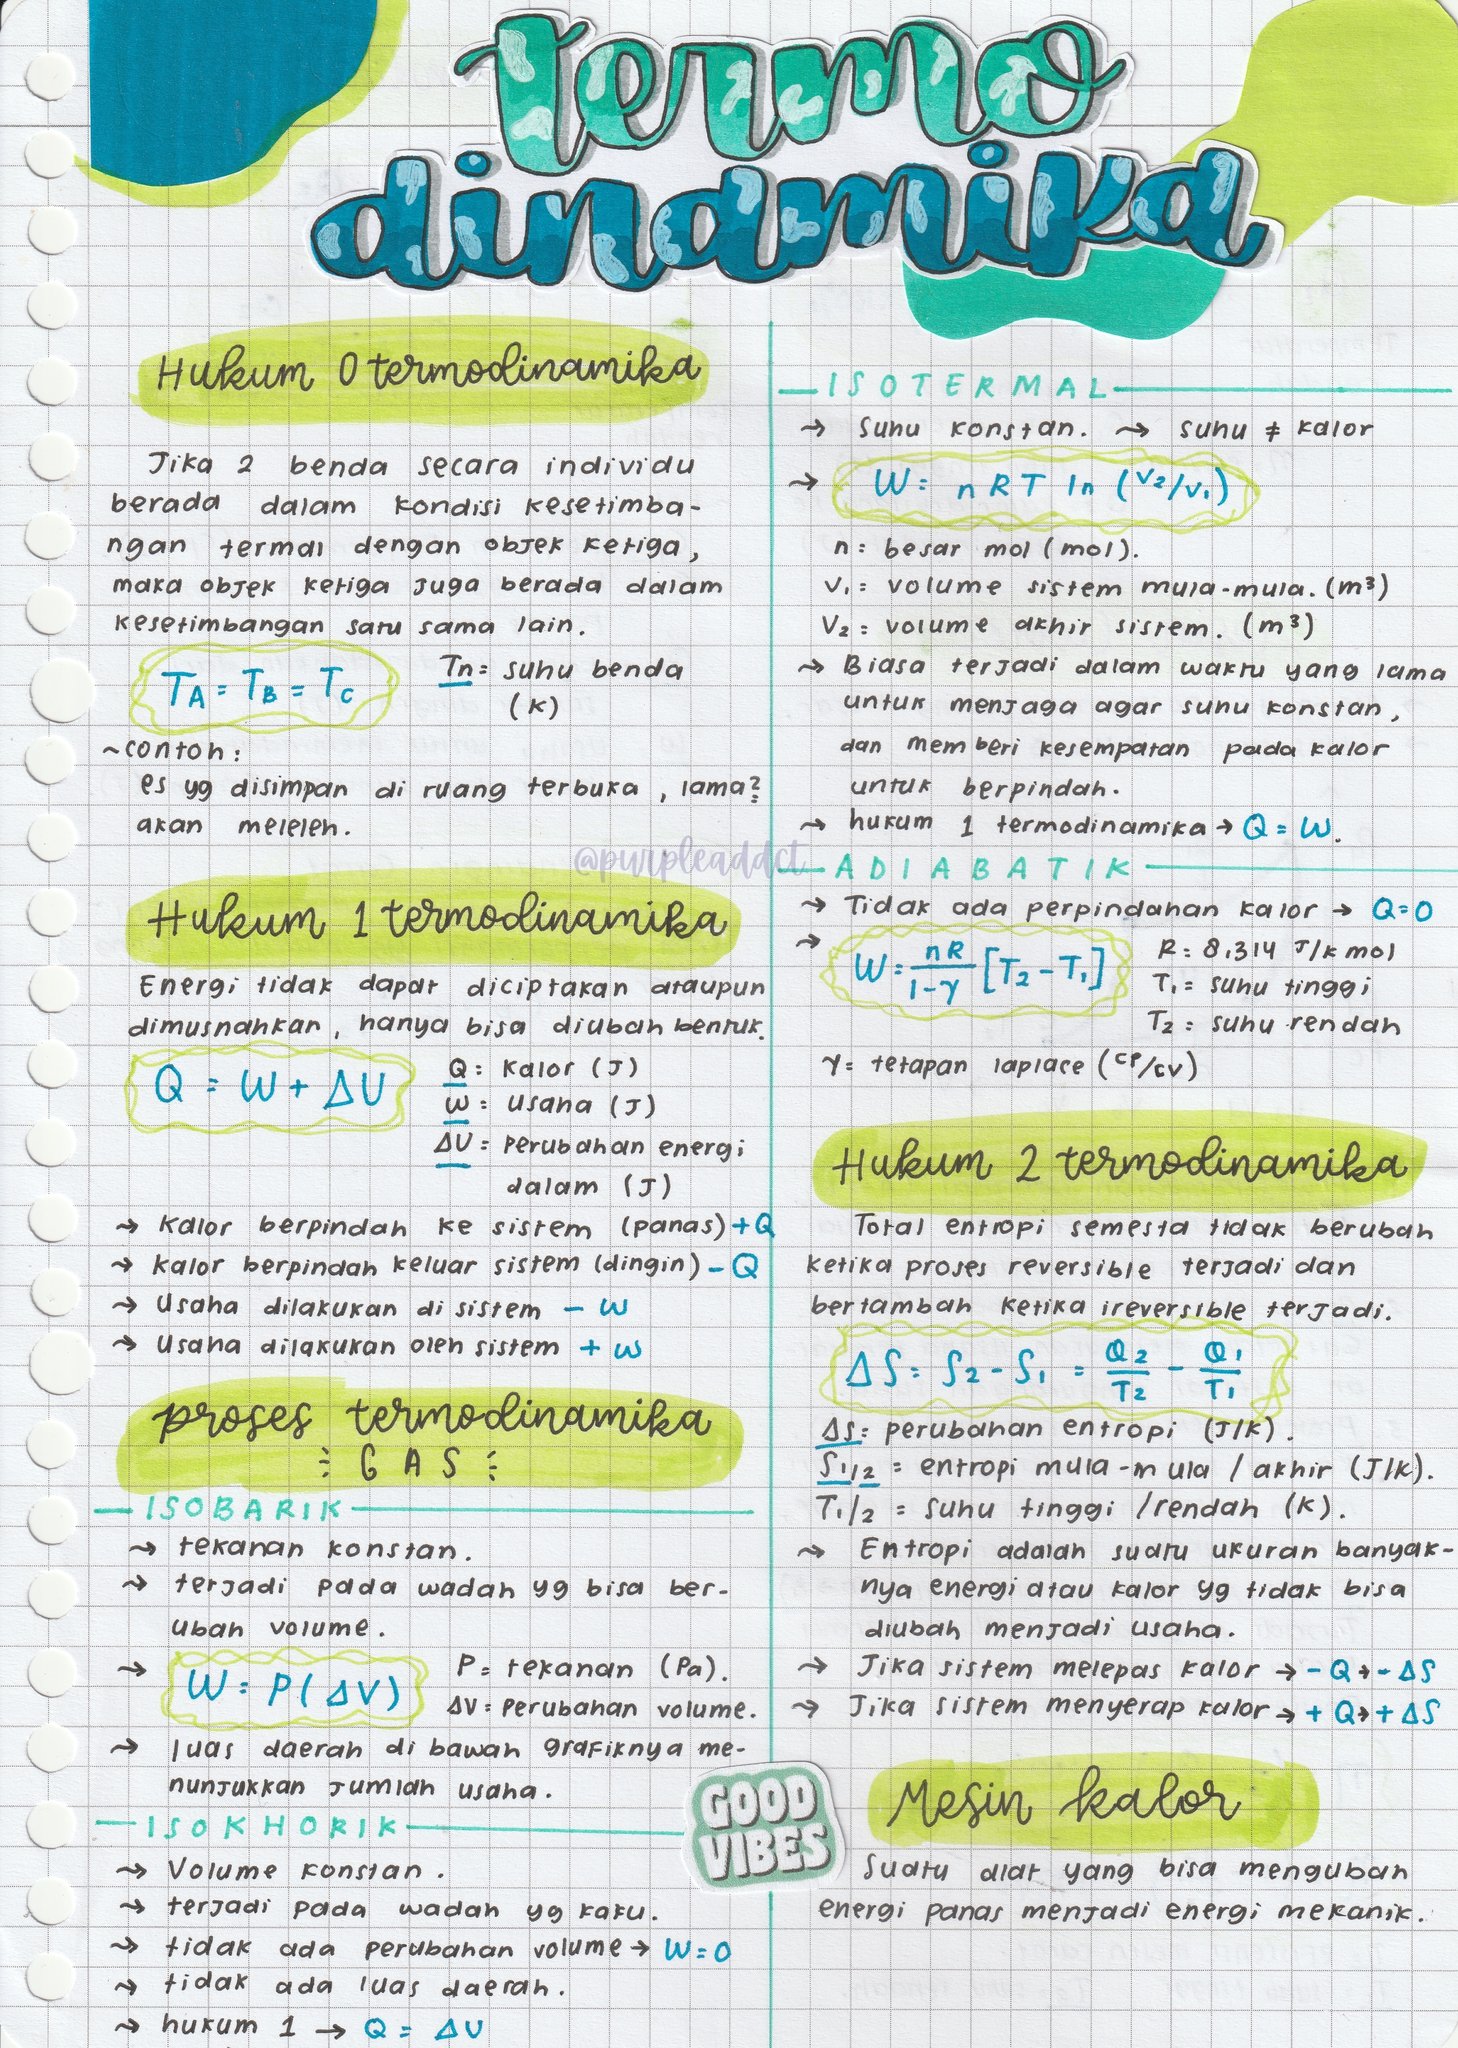 termo
dinamika
Hukum 0 termodinamika
Jika 2 benda secara individu
berada dalam kondisi kesetimba-
ngan termal dengan objek ketiga,
maka objek ketiga juga berada dalam
kesetimbangan satu sama lain.
TA = TB = TC
Tn = suhu benda
(K)
~contoh:
es yg disimpan di ruang terbuka, lama²
akan meleleh.
@purpleaddct
Hukum 1 termodinamika
Energi tidak dapat diciptakan ataupun
dimusnahkan, hanya bisa diubah bentuk.
Q = W + ΔU
Q: Kalor (J)
W: Usaha (J)
ΔU: perubahan energi
dalam (J)
→ Kalor berpindah ke sistem (panas) +Q
→ Kalor berpindah keluar sistem (dingin) -Q
→ Usaha dilakukan di sistem - W
→ Usaha dilakukan oleh sistem + W
proses termodinamika
GAS
ISOBARIK
→ tekanan konstan.
→ terjadi pada wadah yg bisa ber-
ubah volume.
→ W = P(ΔV)
P = tekanan (Pa).
ΔV = perubahan volume.
→ luas daerah di bawah grafiknya me-
nunjukkan jumlah usaha.
ISOKHORIK
→ Volume konstan.
→ terjadi pada wadah yg kaku.
→ tidak ada perubahan volume → W = 0
→ tidak ada luas daerah.
→ hukum 1 → Q = ΔU
GOOD
VIBES
ISOTERMAL
→ Suhu konstan. → suhu ≠ kalor
→ W = nRT ln (V2/V1)
n = besar mol (mol).
V1 = volume sistem mula-mula. (m³)
V2 = volume akhir sistem. (m³)
→ Biasa terjadi dalam waktu yang lama
untuk menjaga agar suhu konstan,
dan memberi kesempatan pada kalor
untuk berpindah.
→ hukum 1 termodinamika → Q = W.
ADIABATIK
→ Tidak ada perpindahan kalor → Q=0
→ W = nR/1-γ [T2 - T1]
R = 8,314 J/k mol
T1 = suhu tinggi
T2 = suhu rendah
γ = tetapan laplace (CP/CV)
Hukum 2 termodinamika
Total entropi semesta tidak berubah
ketika proses reversible terjadi dan
bertambah ketika ireversible terjadi.
ΔS = S2 - S1 = Q2/T2 - Q1/T1
ΔS = perubahan entropi (J/K).
S1/2 = entropi mula-mula / akhir (J/K).
T1/2 = suhu tinggi /rendah (K).
→ Entropi adalah suatu ukuran banyak-
nya energi atau kalor yg tidak bisa
diubah menjadi usaha.
→ Jika sistem melepas kalor → - Q → - ΔS
→ Jika sistem menyerap kalor → + Q → + ΔS
Mesin kalor
Suatu alat yang bisa mengubah
energi panas menjadi energi mekanik.